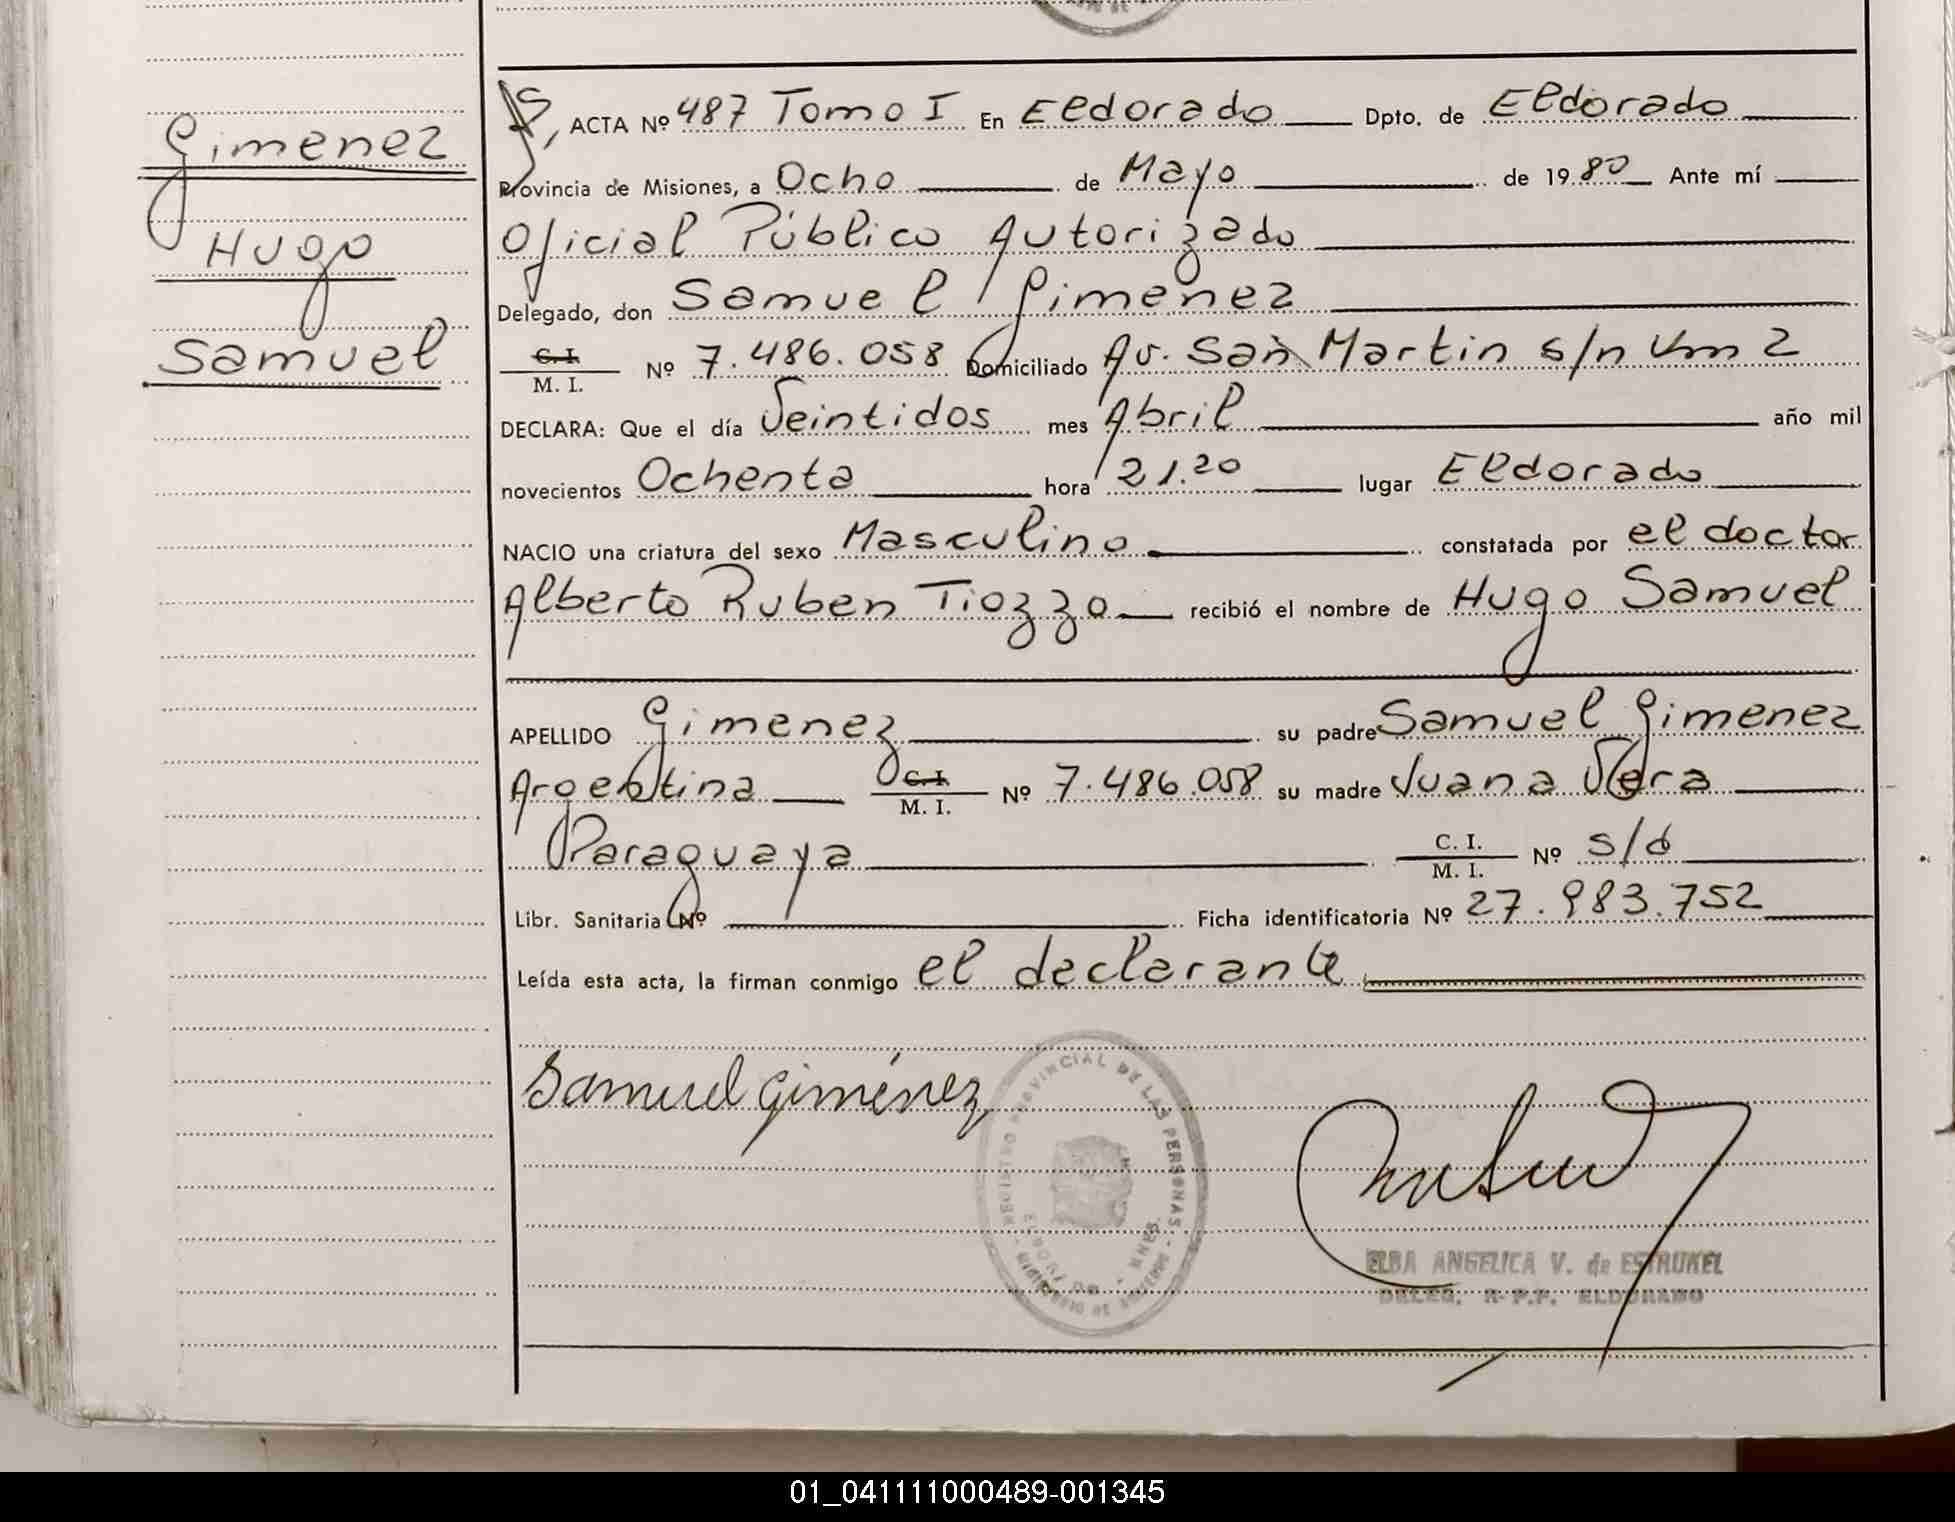 Gimenez
Hugo
Samuel
ACTA Nº 487 Tomo I En Eldorado Dpto. de Eldorado
Provincia de Misiones, a Ocho de Mayo de 19 80 Ante mí
Oficial Público Autorizado
Delegado, don Samuel Gimenez
C. I.
M. I. Nº 7.486.058 Domiciliado Av. San Martin s/n Km 2
DECLARA: Que el día Veintidos mes Abril año mil
novecientos Ochenta hora 21.20 lugar Eldorado
NACIO una criatura del sexo Masculino constatada por el doctor
Alberto Ruben Tiozzo recibió el nombre de Hugo Samuel
APELLIDO Gimenez su padre Samuel Gimenez
Argentina C. I.
M. I. Nº 7.486.058 su madre Juana Vera
Paraguaya C. I.
M. I. Nº s/d
Libr. Sanitaria Nº Ficha identificatoria Nº 27.983.752
Leída esta acta, la firman conmigo el declarante
Samuel Giménez
REGISTRO PROVINCIAL DE LAS PERSONAS
ELDORADO
ELBA ANGELICA V. de ESTRUKEL
DELEG. R. P. P. ELDORADO
01_041111000489-001345